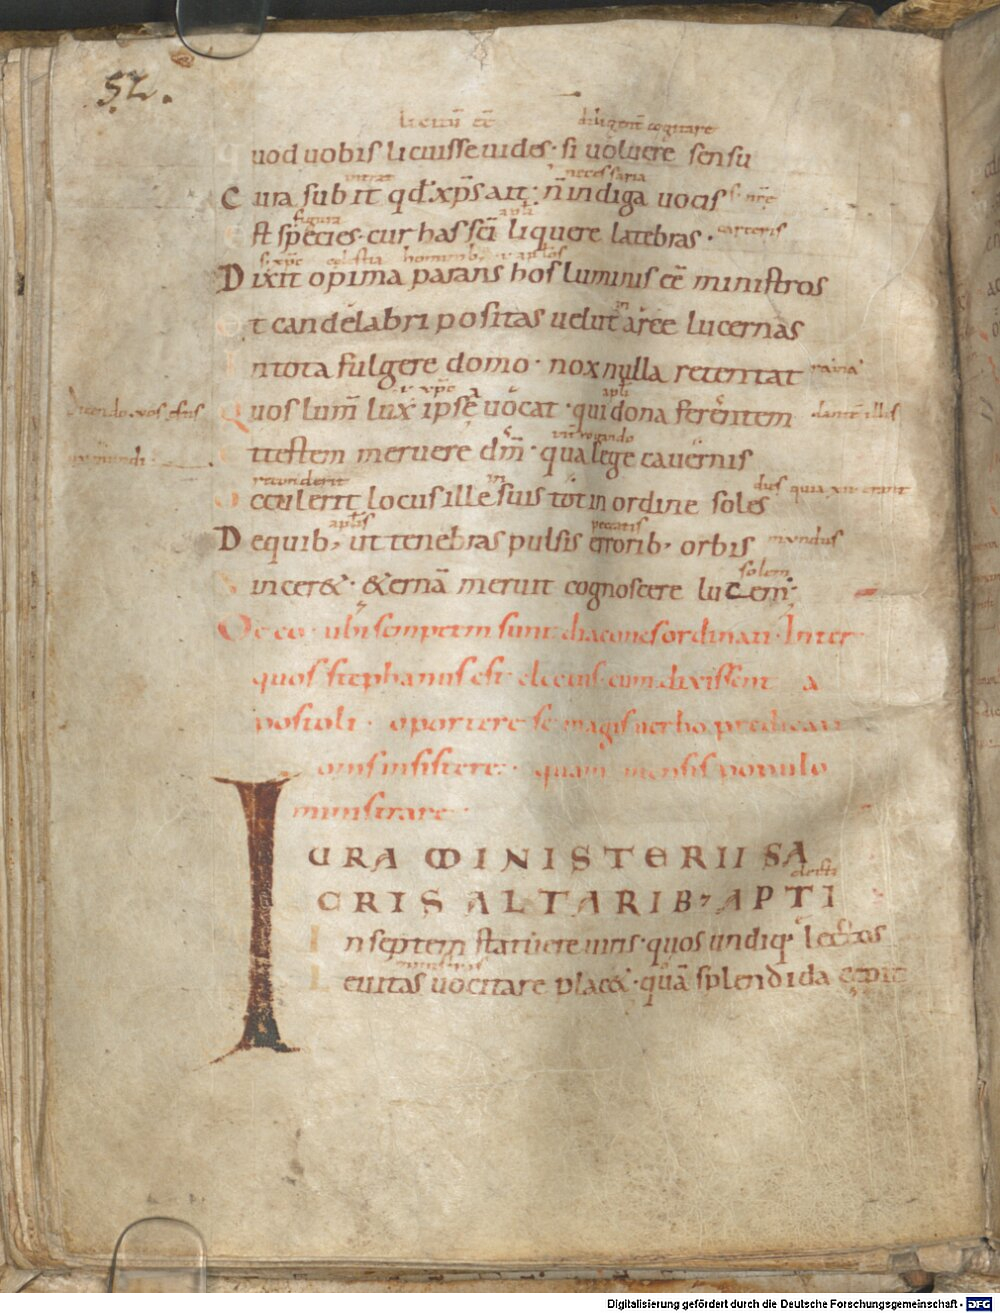 52.
licitū eē diligent̄ cogitare
Quod uobis licuisse uides · si uoluere sensu
intrat necessaria
Cura subit qd̄ xp̄s ait · n̄ indiga uocis
figura apl̄i
Est species · cur has sc̄i liquere latebras · carceris
s. xp̄c celestia hominib;
Dixit opima parans hos luminis eē ministros
in
Et candelabri positas uelut aree lucernas
In tota fulgere domo · nox nulla retentat
xp̄c apl̄i
Quos lum̄ lux ipse uocat · qui dona ferentem dant̄ illis
dicendo · uos estis
mundi
rogando
Et testem meruere dm̄ · qua lege cauernis
in dies quia xii erant
Occulerit locus ille suis tot in ordine soles
apl̄is peccatis
De quib; ut tenebras pulsis errorib; orbis mundus
solem
Sincer& · & &ernā meruit cognoscere lucem ·
De eo · ubi septem sunt diacones ordinati · Inter
quos stephanus est electus · cum dixissent a
postoli · oportere se magis uerbo predicati
onis insistere · quam mensis populo
ministrare
IURA MINISTERII SA
CRIS ALTARIB; APTI
In septem statuere uiris · quos undiq; lectos
ministros
Leuitas uocitare plac& · quā splendida cepit
Digitalisierung gefördert durch die Deutsche Forschungsgemeinschaft - DFG